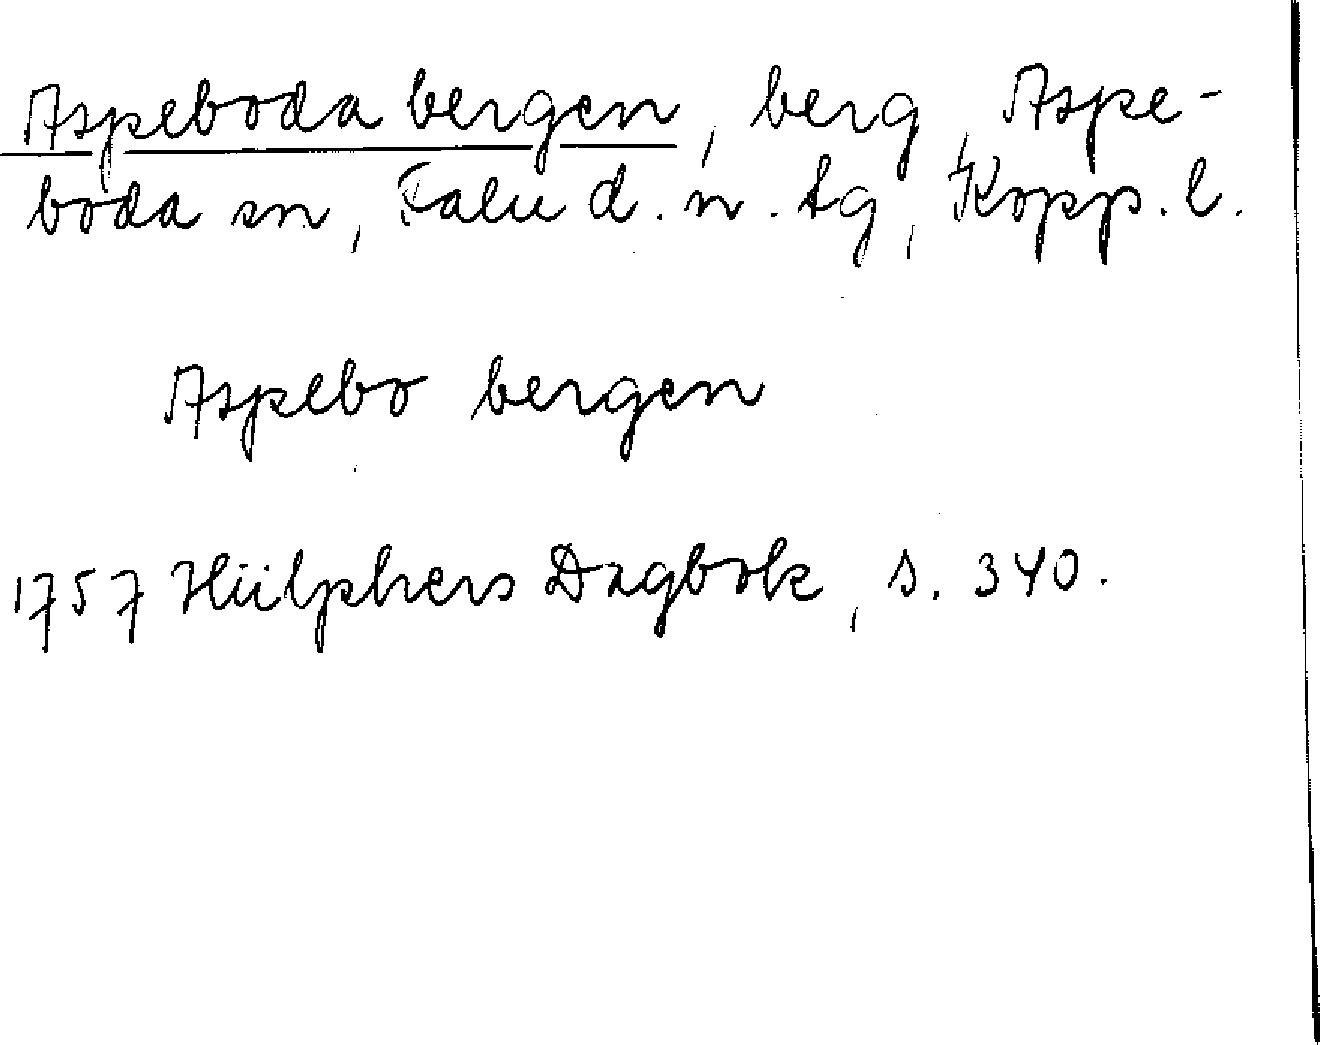 Aspeboda bergen, berg, Aspe-
boda sn, Falu d. n. tg, Kopp. l.
Aspebo bergen
1757 Hülphers Dagbok, s. 340.